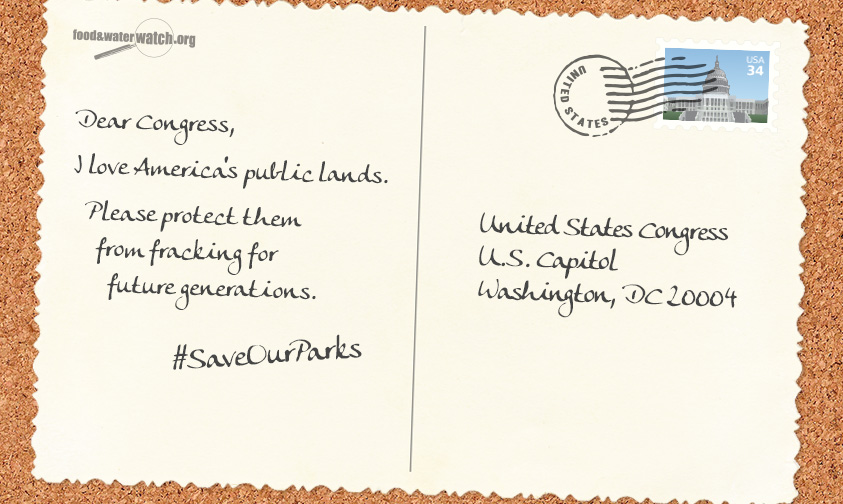 food&waterwatch.org
Dear Congress,
I love America's public lands.
Please protect them
from fracking for
future generations.
#SaveOurParks
UNITED STATES
USA
34
United States Congress
U.S. Capitol
Washington, DC 20004